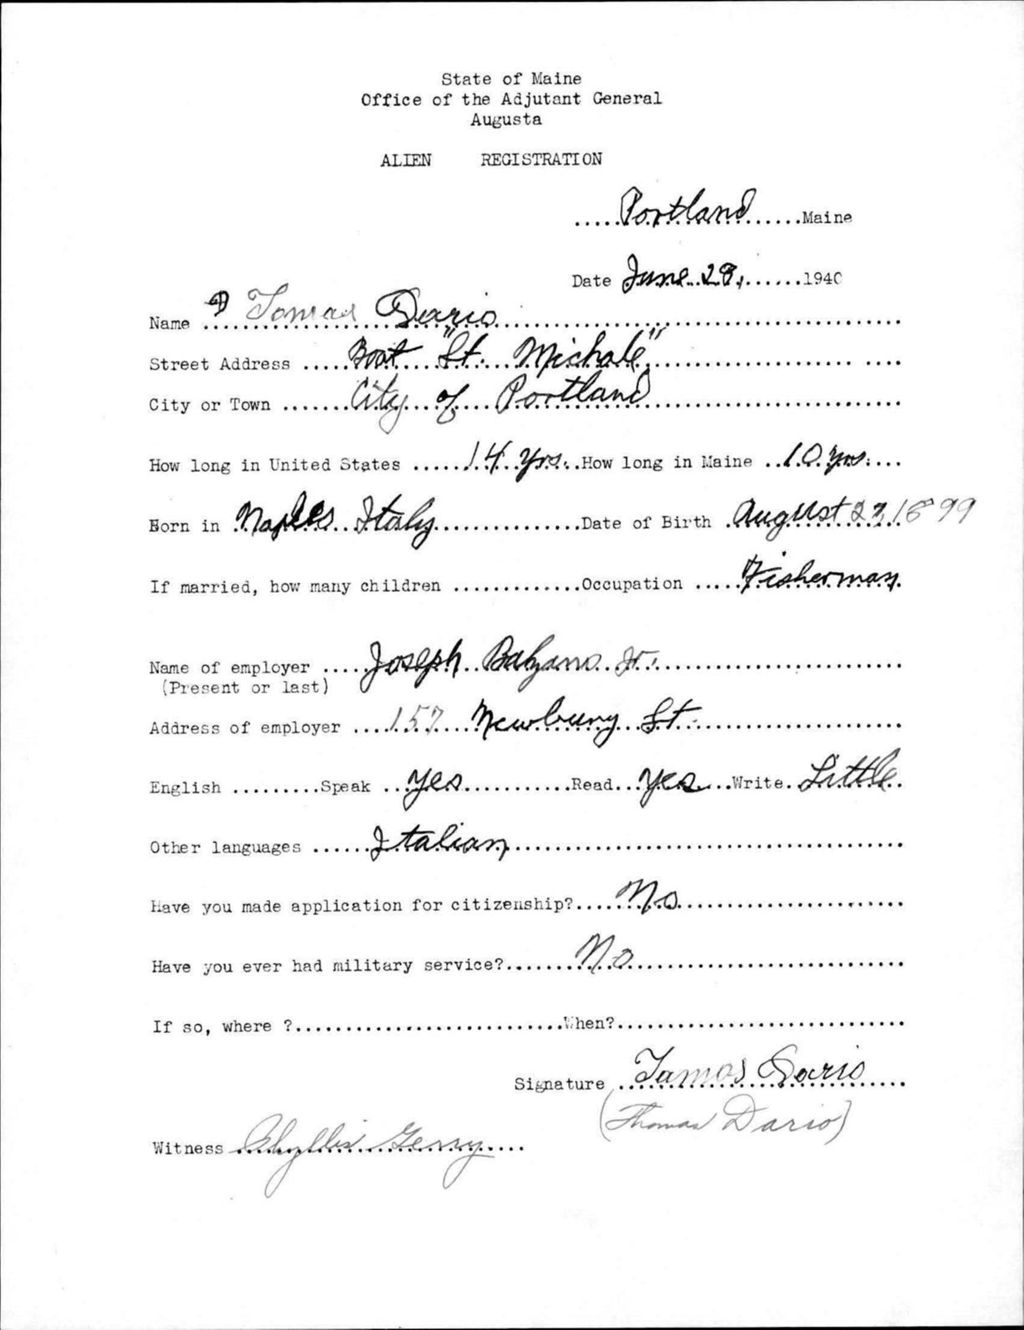 State of Maine
Office of the Adjutant General
Augusta
ALIEN REGISTRATION
.....Portland......Maine
Date June 28,......1940
D
Name ........Tomas Dario........
Street Address .....Boat "St. Michale"........
City or Town .......City of Portland........
How long in United States .....14 yrs...How long in Maine ..10 yrs....
Born in .Naples Italy..............Date of Birth .August 27, 1899
If married, how many children .............Occupation .....Fisherman.
Name of employer ....Joseph Balzano Jr........
(Present or last)
Address of employer ....157 Newbury St........
English .........Speak ..yes...........Read...yes...Write.Little.
Other languages ......Italian........
Have you made application for citizenship?....No........
Have you ever had military service?.......No........
If so, where ?...........................When?.............................
Signature ..Tamos Dario....
(Thomas Dario)
Witness Phyllis Gerry....